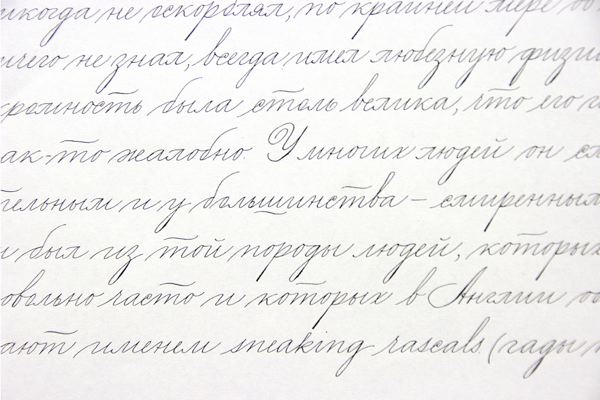 никогда не оскорблял, по крайней мере во
ичего не знал, всегда имел любезную физи
кромность была столь велика, что его
ак-то жалобно. У многих людей он
тельным и у большинства – смиренным
и был из той породы людей, которых
овольно часто и которых в Англии
ают именем sneaking rascals (гады